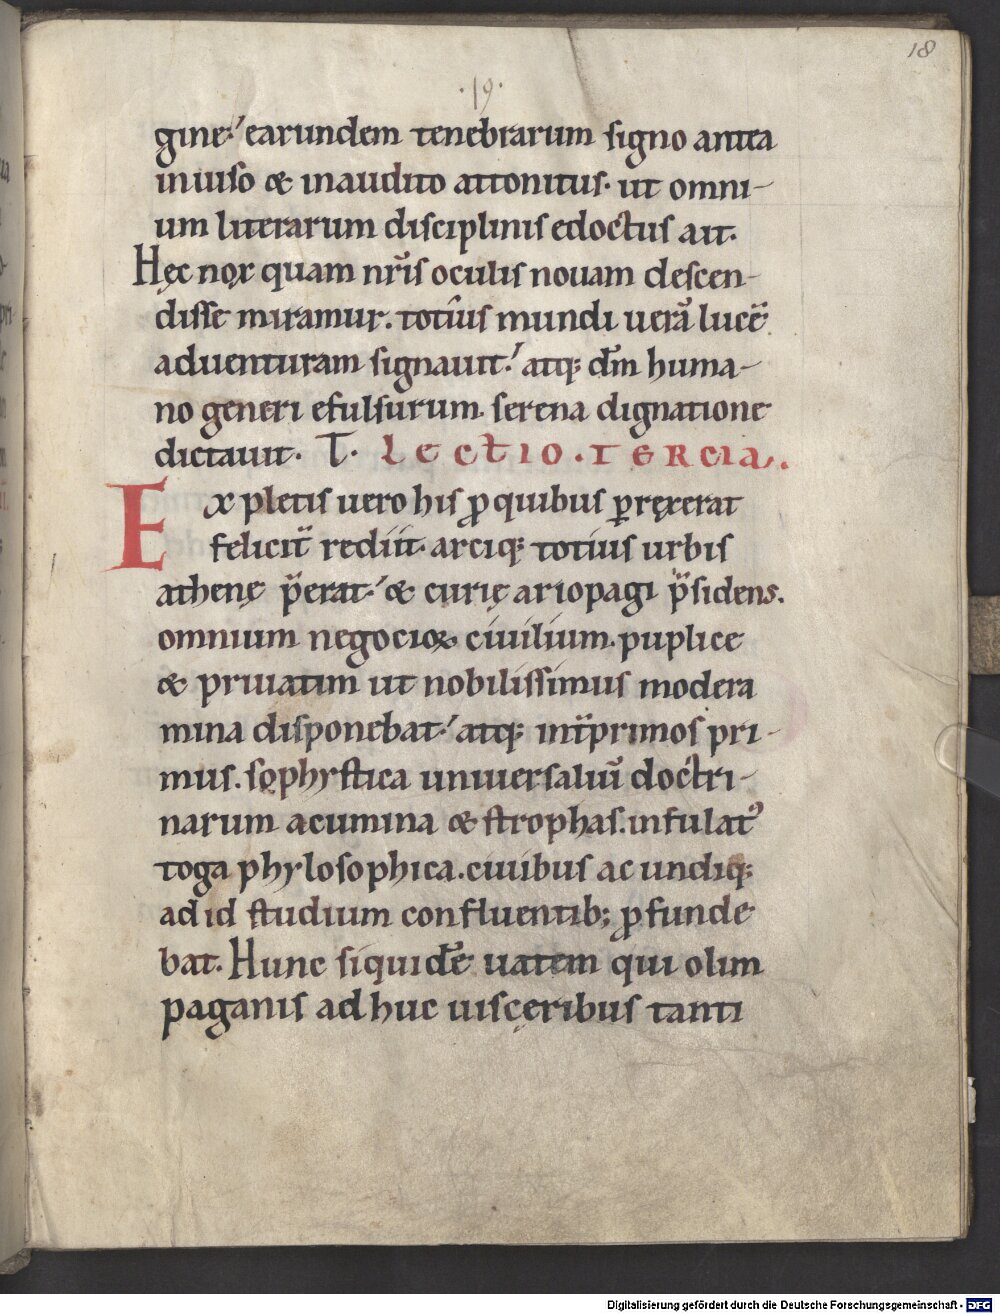 18
·19·
gine·' earundem tenebrarum signo antea
inuiso & inaudito attonitus· ut omni-
um literarum disciplinis edoctus ait·
Hęc nox quam nr̄is oculis nouam descen-
disse miramur. totius mundi uerā lucē
aduenturam signauit·' atq; dm̄ huma-
no generi efulsurum. serena dignatione
dictauit· T· Lectio·tercia.
Expletis uero his ꝓ quibus ꝑrexerat
felicit̄ rediit. arciq; totius urbis
athenę p̄erat·' & curię ariopagi p̄sidens.
omnium negocioꝝ ciuilium. puplice
& priuatim ut nobilissimus modera
mina disponebat·' atq; int̄ primos pri-
mus. sophystica uniuersaliū doctri-
narum acumina & strophas. infulatꝰ
toga phylosophica. ciuibus ac undiq;
ad id studium confluentib; ꝓfunde
bat. Hunc siquidē uatem qui olim
paganis ad huc uisceribus tanti
Digitalisierung gefördert durch die Deutsche Forschungsgemeinschaft - DFG